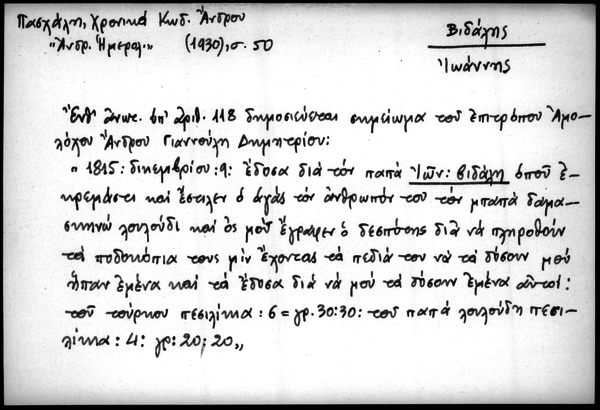 Πασχάλη, Χρονικά Κωδ. Ἄνδρου
"Ἀνδρ. Ἡμερολ." (1930), σ. 50
Βιδάλης
Ἰωάννης
Ἔνθ' ἀνωτ. ὑπ' ἀριθ. 118 δημοσιεύεται σημείωμα τοῦ ἐπιτρόπου Ἀμο-
λόχου Ἄνδρου Γιαννούλη Δημητρίου:
" 1815: δικεμβρίου: 9: ἔδοσα διά τόν παπά Ἰῶν: βιδάλη ὁποῦ ἐ-
κρεμάστι καί ἔστιλεν ὁ ἀγάς τόν ἄνθρωπόν του τόν μπαπά δαμα-
σκηνώ λουλούδι καί ὁς μοῦ ἔγραψεν ὁ δεσπότης διά νά πληροθούν
τά ποδοκόπια τους μίν ἔχοντας τά πεδιά του νά τά δόσουν μοῦ
ἦπαν ἐμένα καί τά ἔδοσα διά νά μοῦ τά δόσουν ἐμένα αὐτοί:
τοῦ τούρκου πεσιλίκια: 6 = γρ. 30: 30: τοῦ παπά λουλούδη πεσι-
λίκια: 4: γρ: 20: 20„